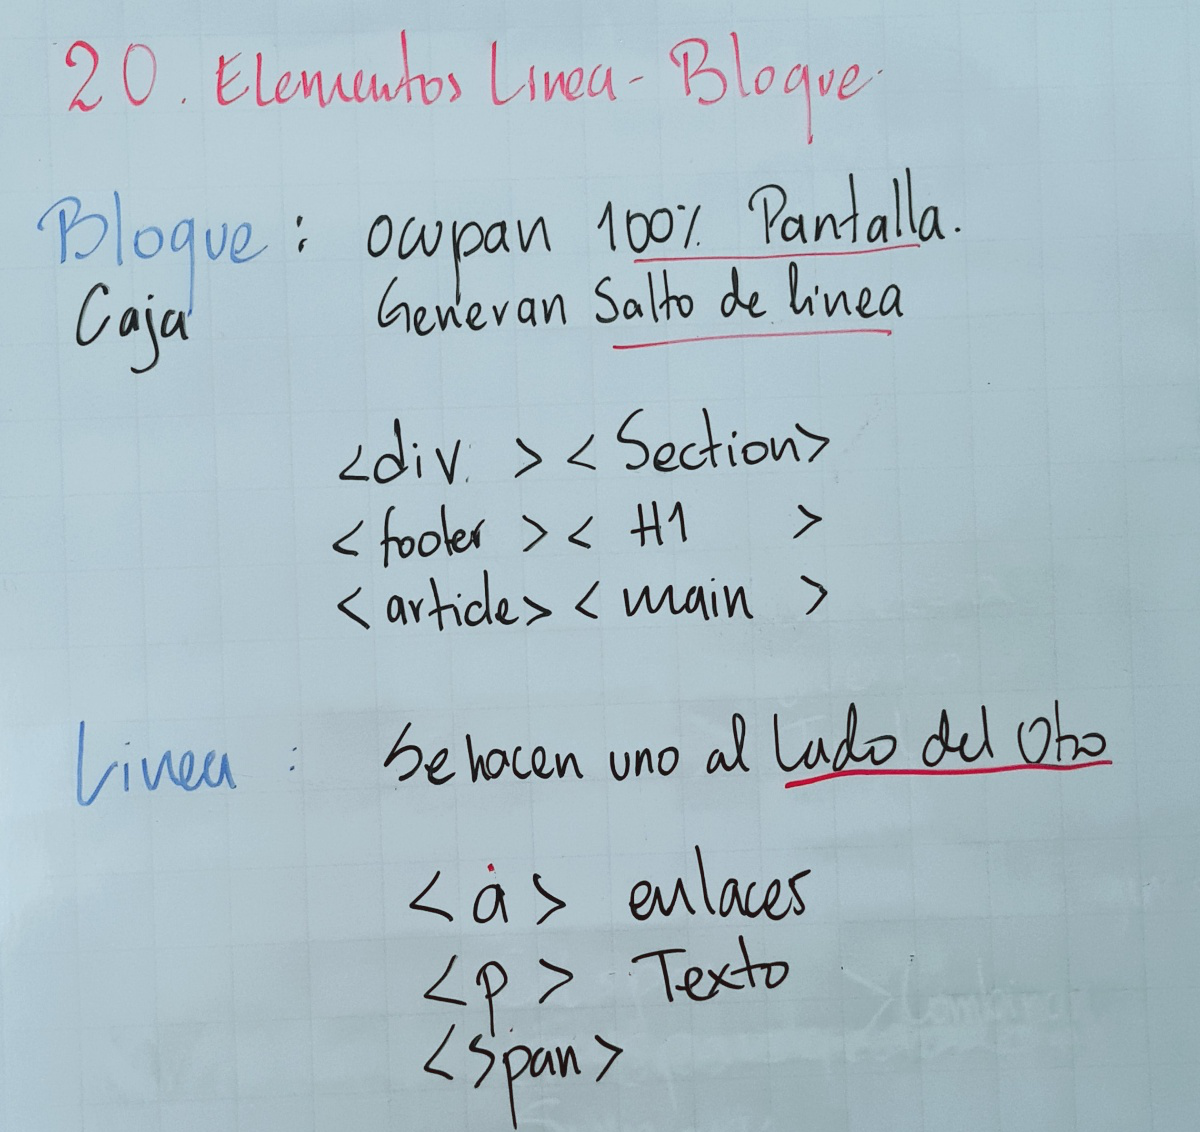 20. Elementos Linea - Bloque
Bloque : ocupan 100% Pantalla.
Caja Generan Salto de linea
<div. > < Section>
<footer > < H1 >
<article> < main >
Linea : Se hacen uno al Lado del Otro
<a> enlaces
<p> Texto
<span>